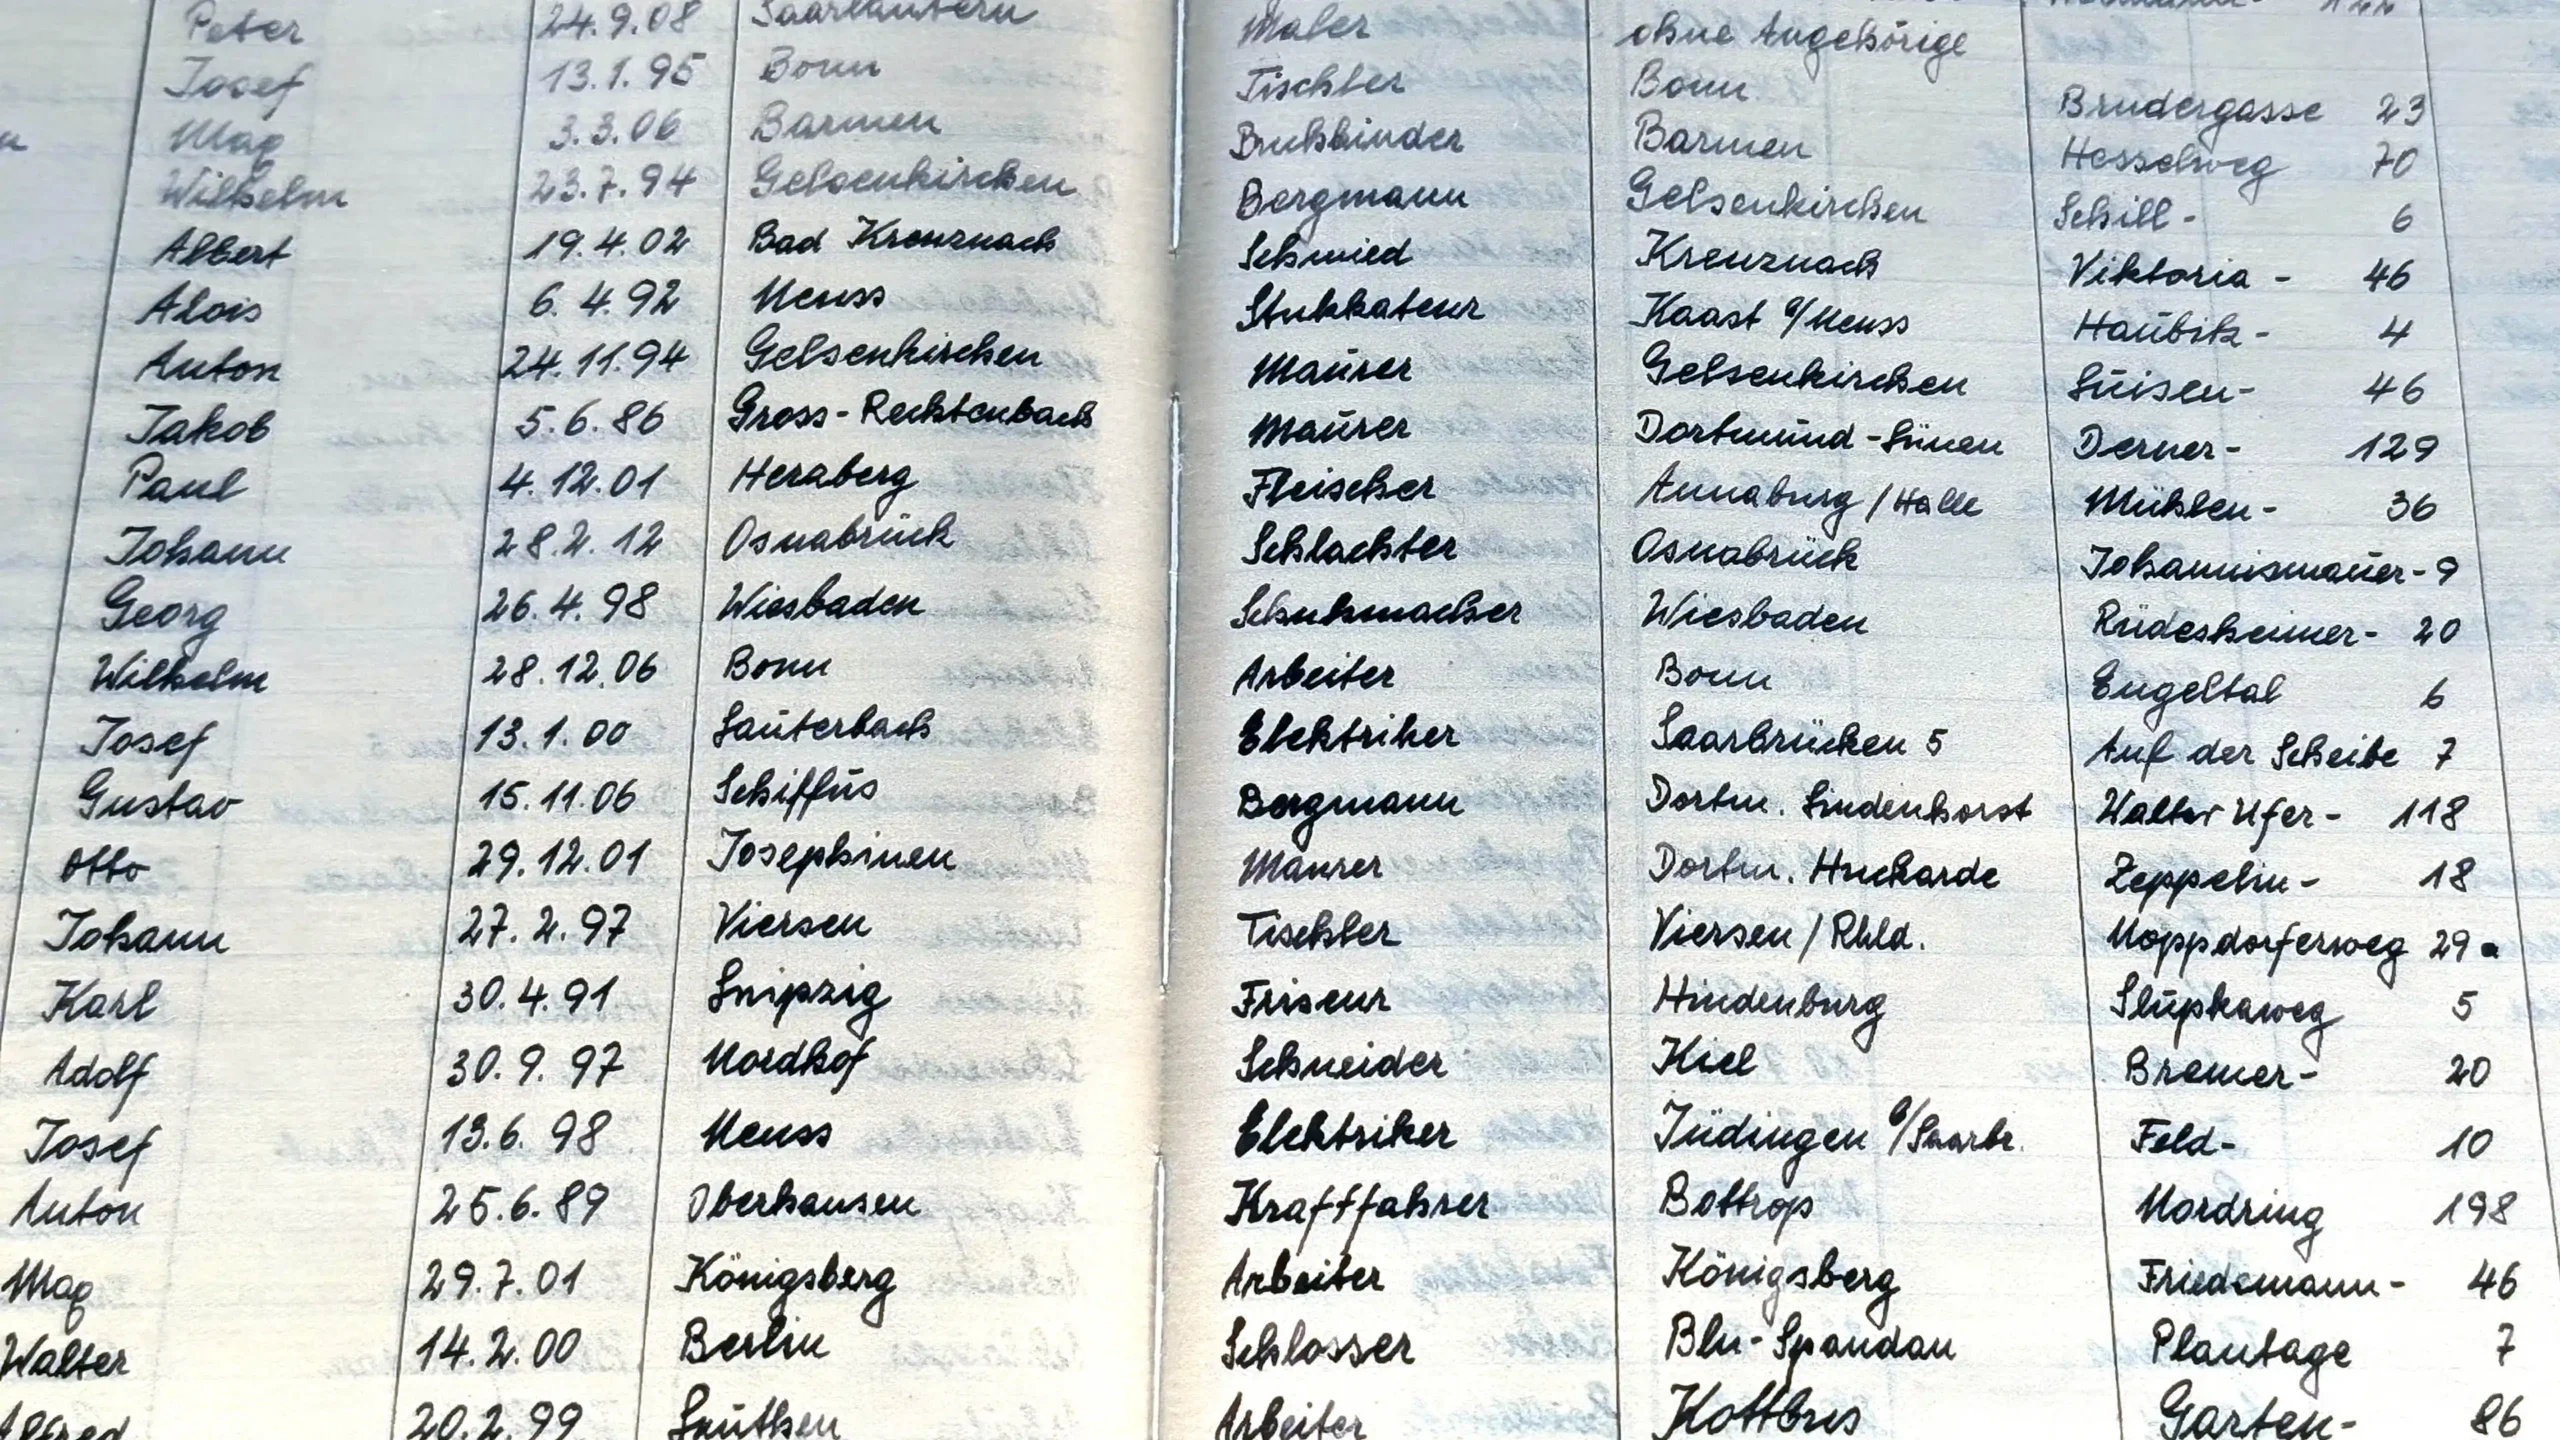 Peter 24.9.08 Saarlautern Maler ohne Angehörige
Josef 13.1.95 Bonn Tischler Bonn Brüdergasse 23
Max 3.3.06 Barmen Buchbinder Barmen Hesselweg 70
Wilhelm 23.7.94 Gelsenkirchen Bergmann Gelsenkirchen Schill- 6
Albert 19.4.02 Bad Kreuznach Schmied Kreuznach Viktoria- 46
Alois 6.4.92 Neuss Stukkateur Kaast b/Neuss Haubik- 4
Anton 24.11.94 Gelsenkirchen Maurer Gelsenkirchen Luisen- 46
Jakob 5.6.86 Gross-Rechtenbach Maurer Dortmund-Lünen Derner- 129
Paul 4.12.01 Herzberg Fleischer Annaburg / Halle Mühlen- 36
Johann 28.2.12 Osnabrück Schlachter Osnabrück Johannismauer- 9
Georg 26.4.98 Wiesbaden Schuhmacher Wiesbaden Rüdesheimer- 20
Wilhelm 28.12.06 Bonn Arbeiter Bonn Engeltal 6
Josef 13.1.00 Lauterbach Elektriker Saarbrücken 5 Auf der Scheibe 7
Gustav 15.11.06 Schiffus Bergmann Dortm. Lindenhorst Walter Ufer- 118
Otto 29.12.01 Josephinen Maurer Dortm. Huckarde Zeppelin- 18
Johann 27.2.97 Viersen Tischler Viersen / Rhld. Noppdorferweg 29a
Karl 30.4.91 Leipzig Friseur Hindenburg Slupkaweg 5
Adolf 30.9.97 Nordhof Schneider Kiel Bremer- 20
Josef 13.6.98 Neuss Elektriker Jüdingen b/Saarbr. Feld- 10
Anton 25.6.89 Oberhausen Kraftfahrer Bottrop Nordring 198
Max 29.7.01 Königsberg Arbeiter Königsberg Friedsmann- 46
Walter 14.2.00 Berlin Schlosser Bln-Spandau Plantage 7
Alfred 20.2.99 Lauthen Arbeiter Kottbus Garten- 86